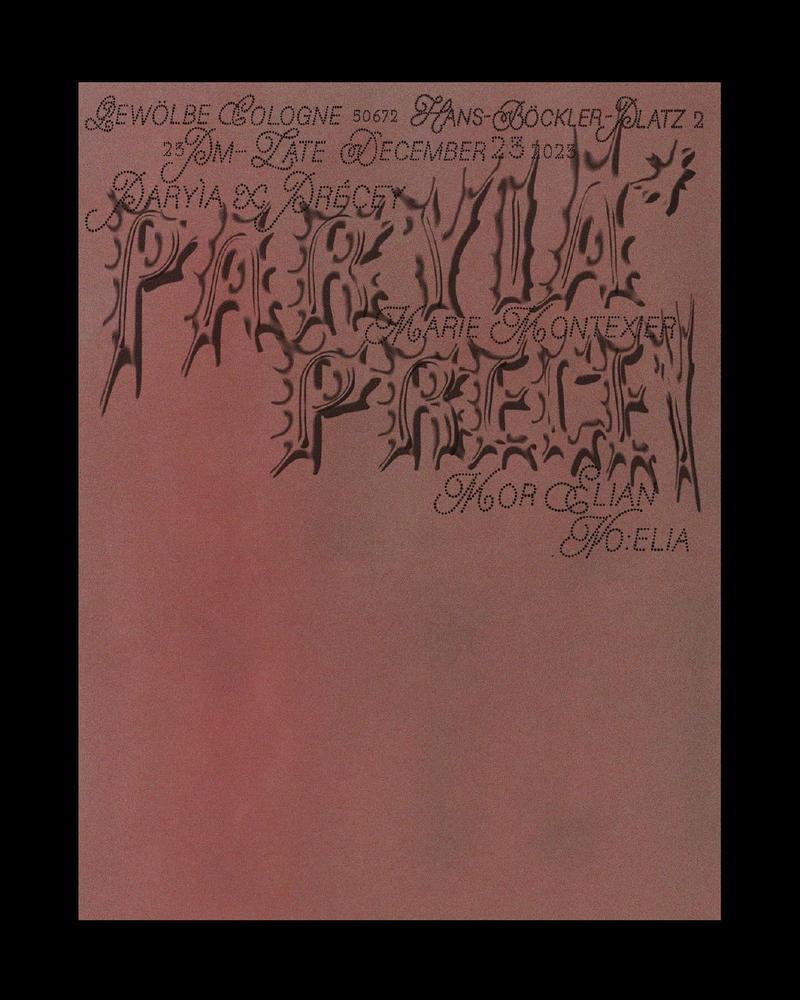 GEWÖLBE COLOGNE 50672 HANS-BÖCKLER-PLATZ 2
23PM- LATE DECEMBER 23 2023
PARYÌA X PRÉCEY
PARYIA*
MARIE MONTEXIER
PRECEY
MOR ELIAN
NO:ELIA